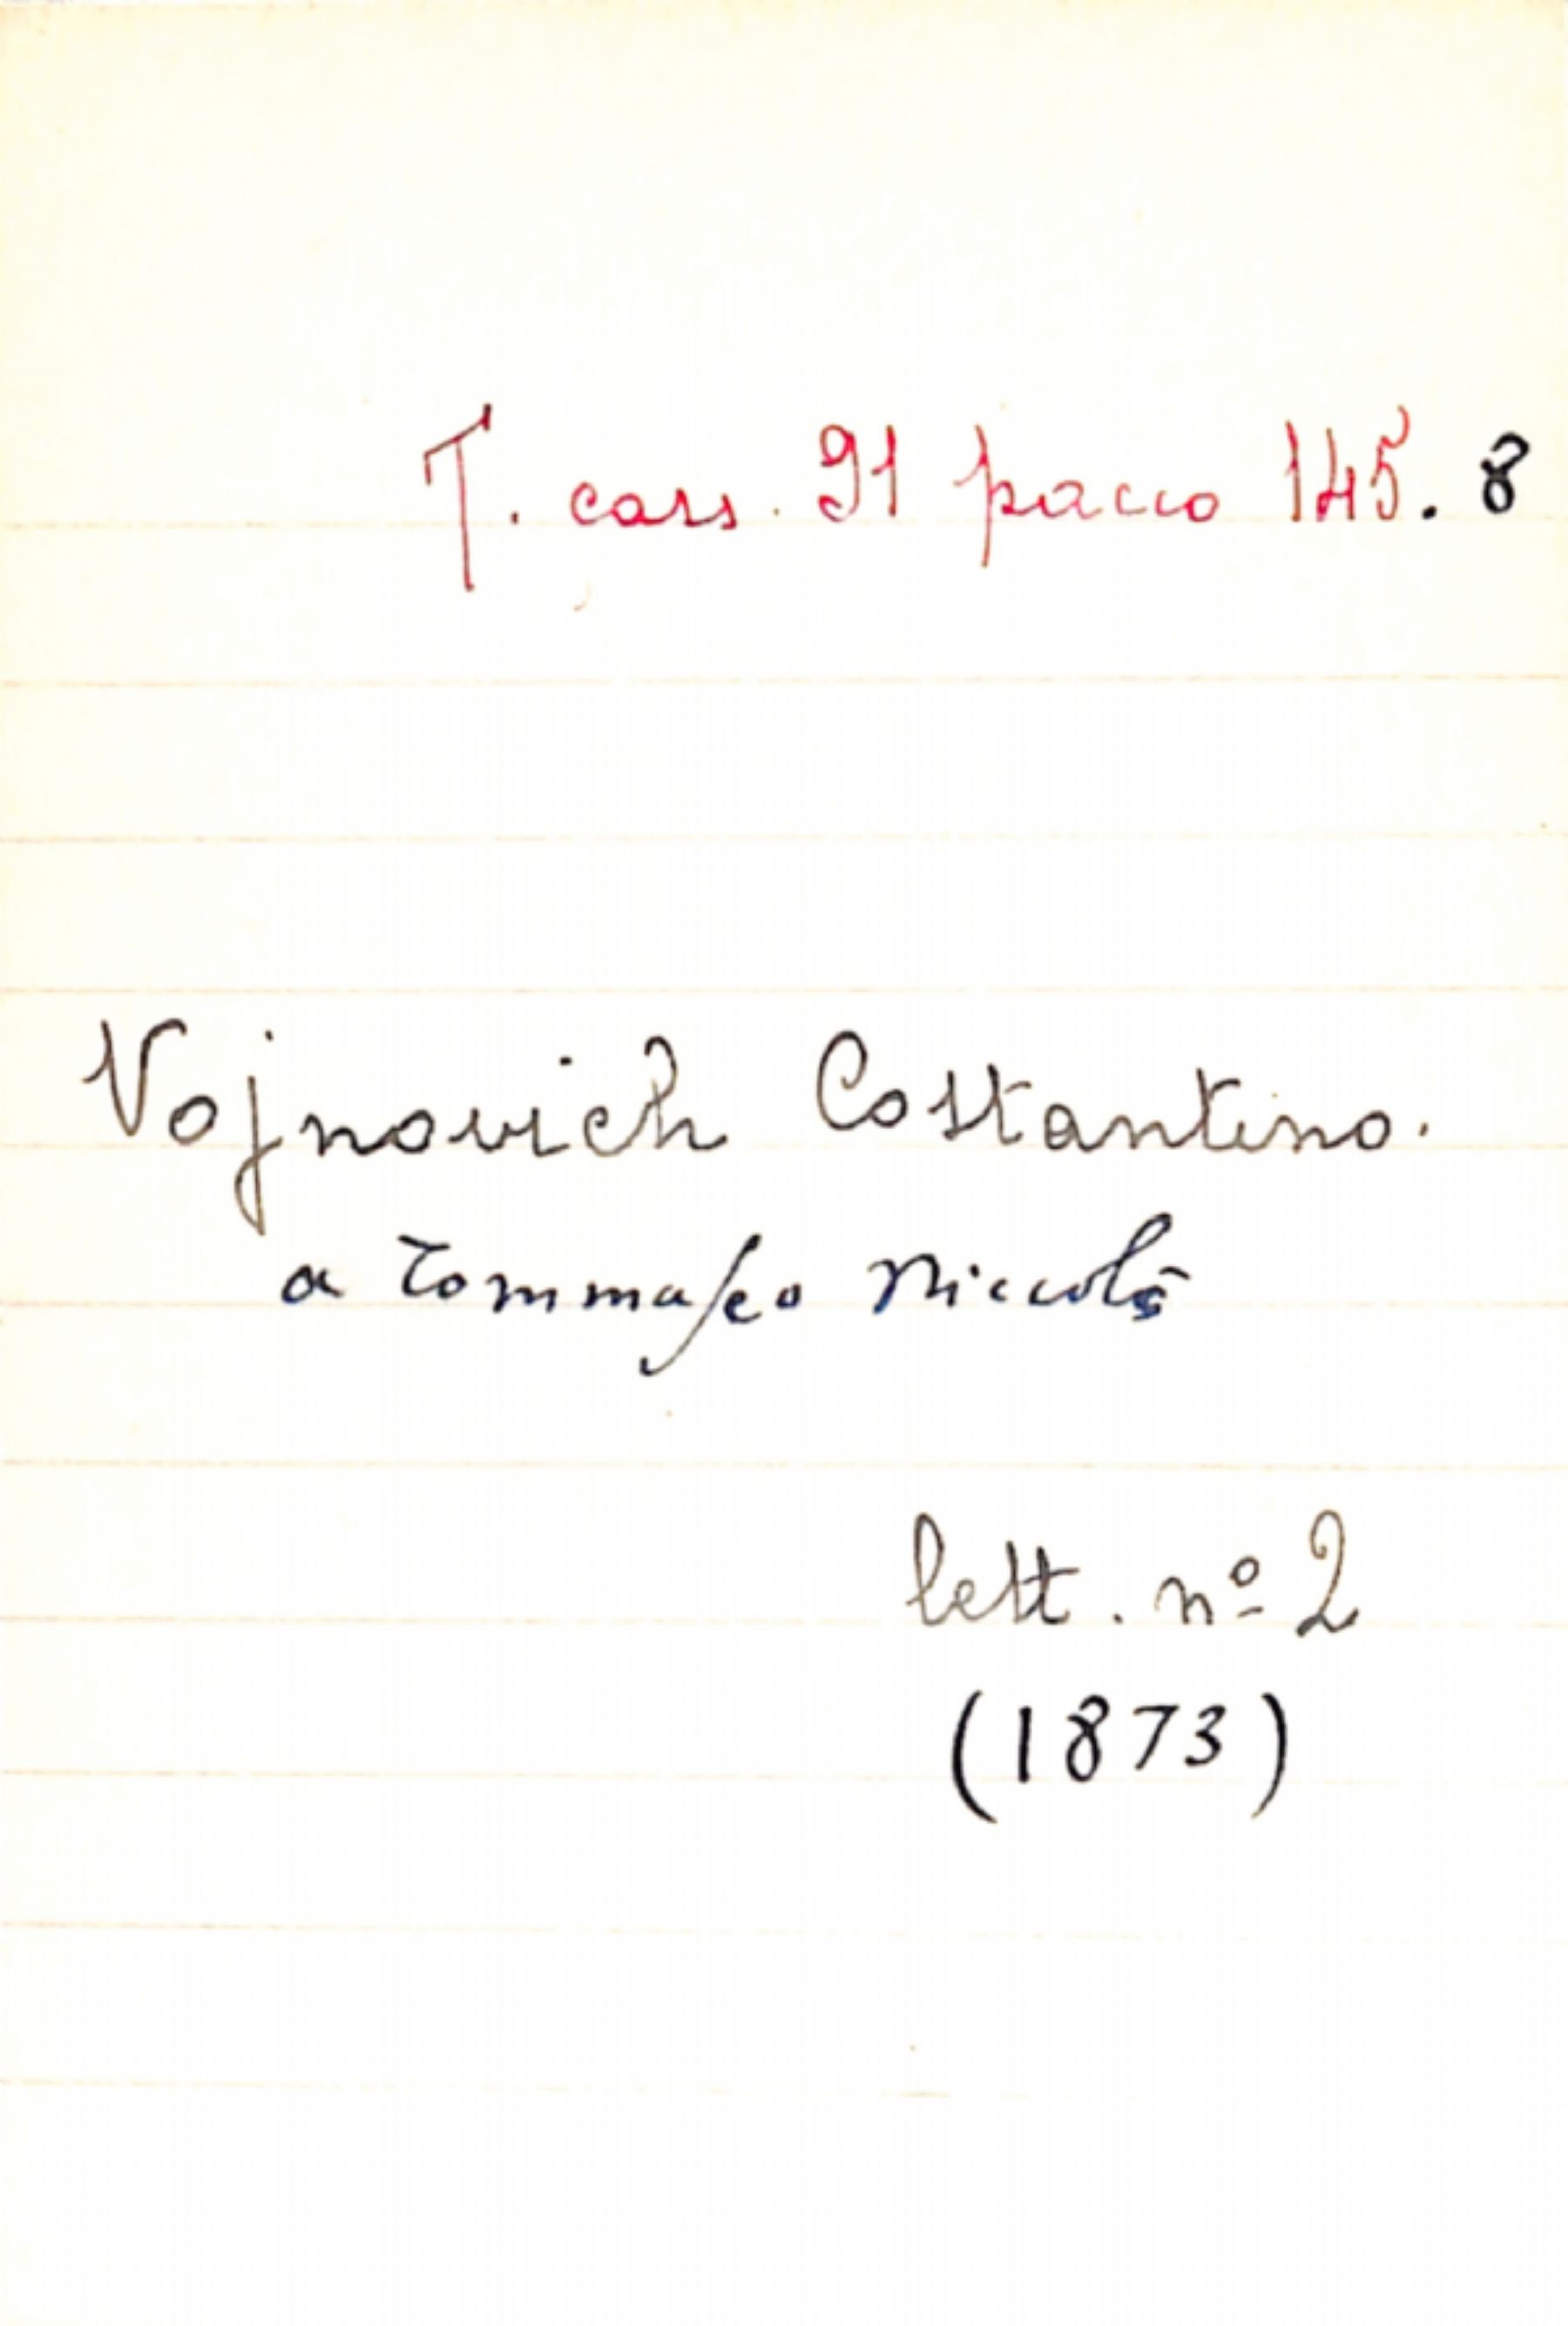 T. cass. 91 pacco 145. 8
Vojnovich Costantino.
a Tommaseo Niccolò
lett. nº 2
(1873)